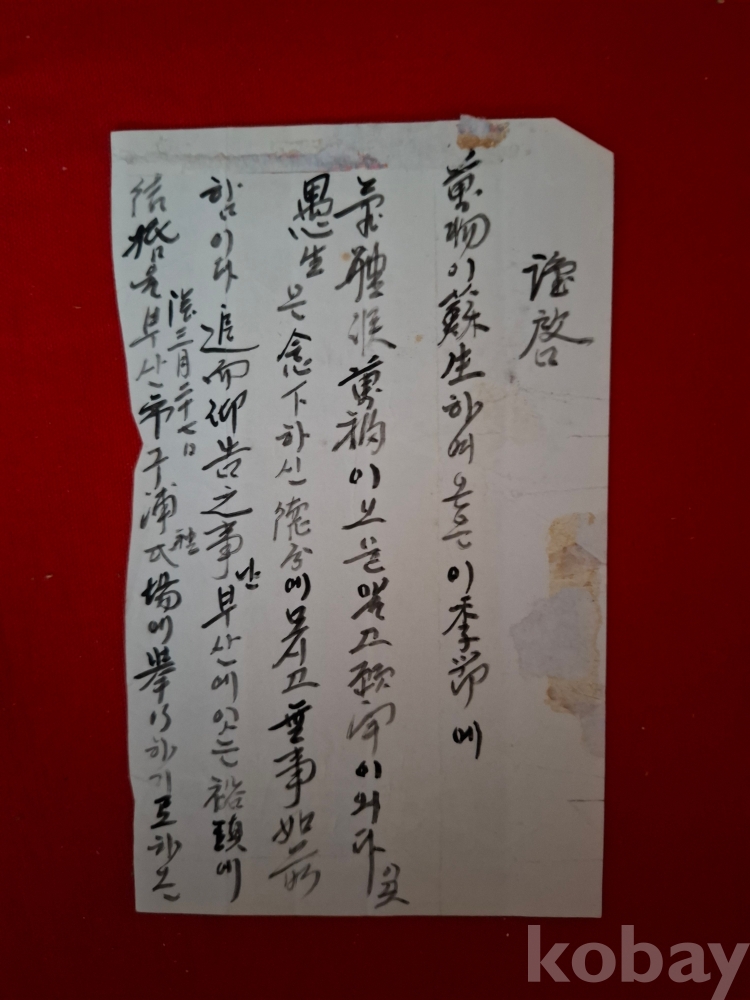 謹啓
萬物이 蘇生하여 오은 이 季節에
氣體候 萬福이 오 願이외다
愚生은 念下하신 德分에 무시고 無事如前
함이다 追而仰告之事난 부산에 잇는 裕鎮에
結婚을 陰三月二十七日 부산市 구浦 禮式場에 擧行하기로 하오
kobay